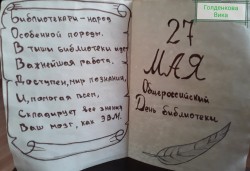 Библиотекари - народ
Особенной породы.
В тиши библиотеки идёт
Важнейшая работа.
Доступен, мир познания,
И, помогая всем,
Складирует все знания
Ваш мозг, как ЭВМ.
Голденкова
Вика
27
МАЯ
Общероссийский
День библиотеки